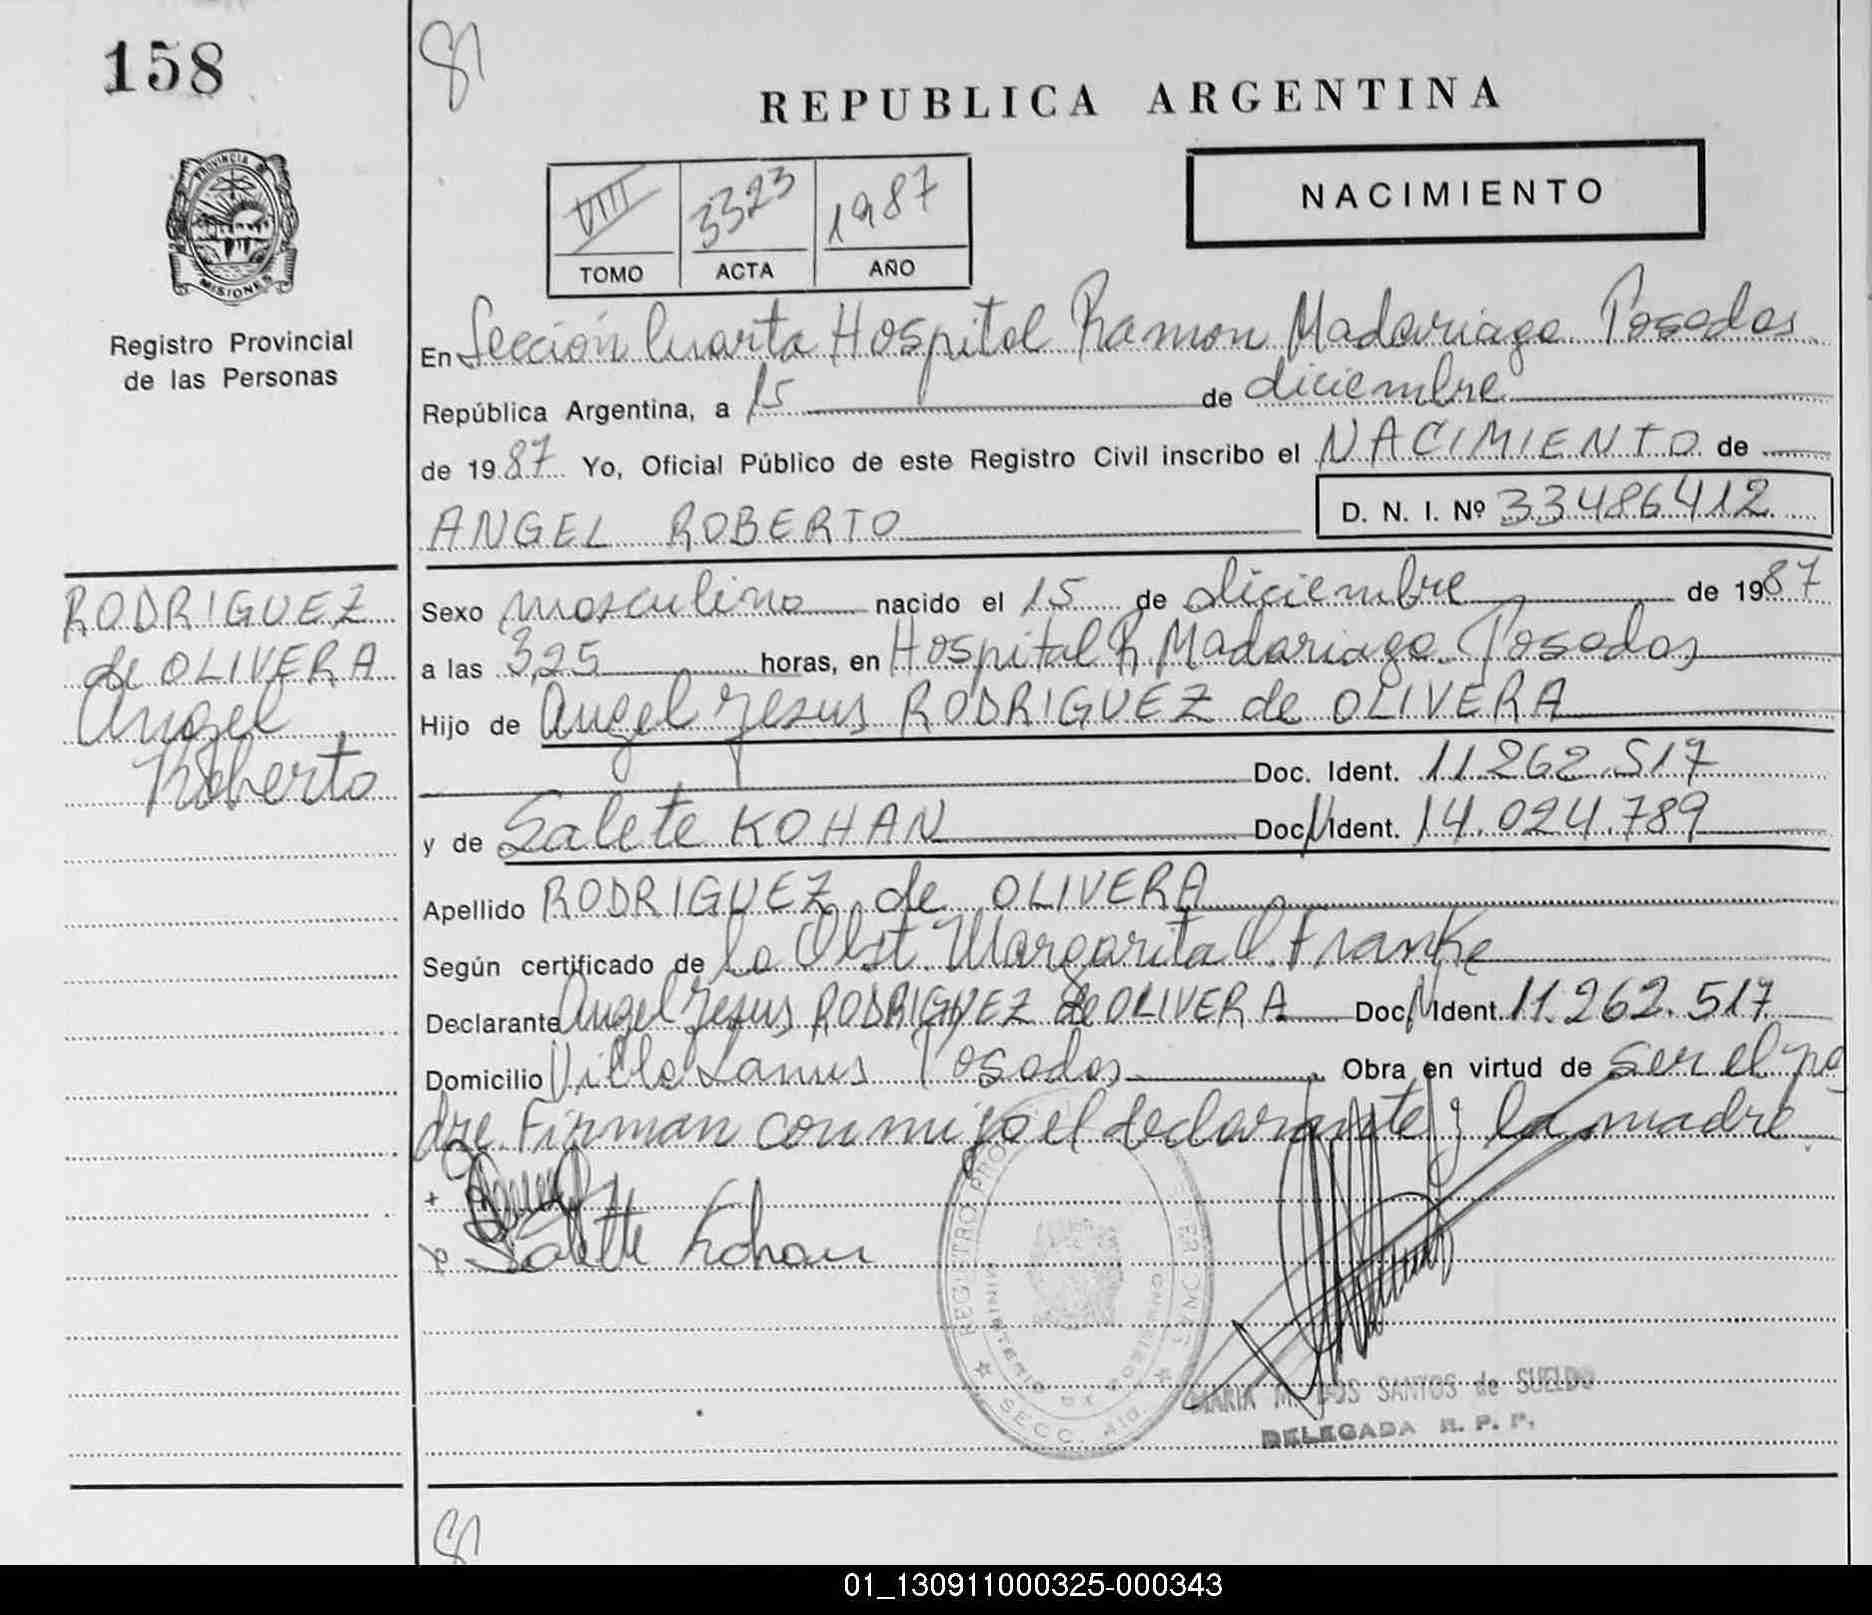 158
81
REPUBLICA ARGENTINA
VIII 3323 1987
TOMO ACTA AÑO
NACIMIENTO
PROVINCIA MISIONES
Registro Provincial
de las Personas
En Sección Cuarta Hospital Ramon Madariaga Posadas
República Argentina, a 15 de diciembre
de 1987 Yo, Oficial Público de este Registro Civil inscribo el NACIMIENTO de
ANGEL ROBERTO D. N. I. Nº 33486412
RODRIGUEZ
de OLIVERA
Angel
Roberto
Sexo masculino nacido el 15 de diciembre de 1987
a las 3,25 horas, en Hospital R. Madariaga. Posadas
Hijo de Angel Jesus RODRIGUEZ de OLIVERA
Doc. Ident. 11.262.517
y de Salete KOHAN Doc N Ident. 14.024.789
Apellido RODRIGUEZ de OLIVERA
Según certificado de la Obst. Margarita O. Franke
Declarante Angel Jesus RODRIGUEZ de OLIVERA Doc N Ident. 11.262.517
Domicilio Villa Lanus Posadas Obra en virtud de ser el pa
dre. Firman conmigo el declarante y la madre.
Salette Kohan
REGISTRO MINISTERIO DE GOBIERNO SECC. 4ta.
MARIA M. DOS SANTOS de SUELDO
DELEGADA R. P. P.
81
01_130911000325-000343